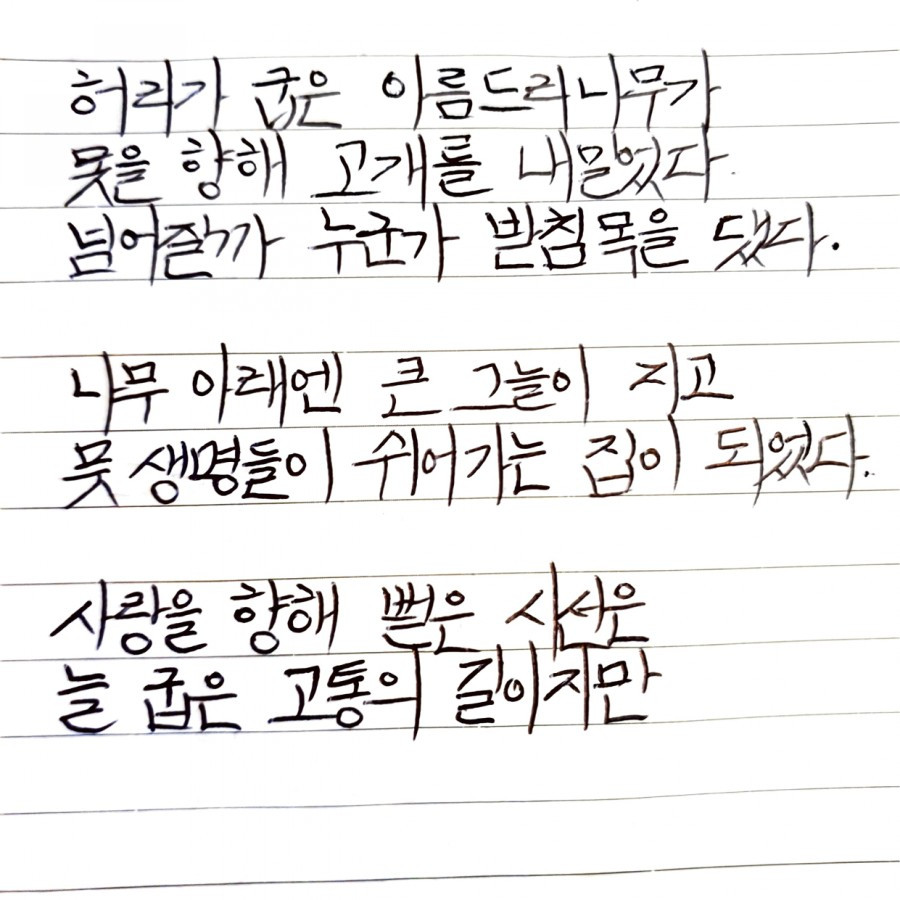 허리가 굽은 아름드리나무가
못을 향해 고개를 내밀었다.
넘어질까 누군가 받침목을 댔다.
나무 아래엔 큰 그늘이 지고
뭇 생명들이 쉬어가는 집이 되었다.
사랑을 향해 뻗은 시선은
늘 굽은 고통의 길이지만